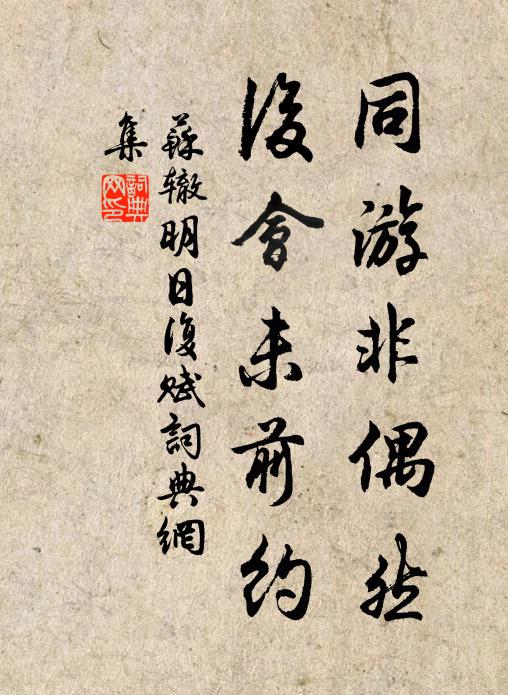 同游非偶然
後會未前約
蘇辙明日復賦詞典網
集
詞典
网印